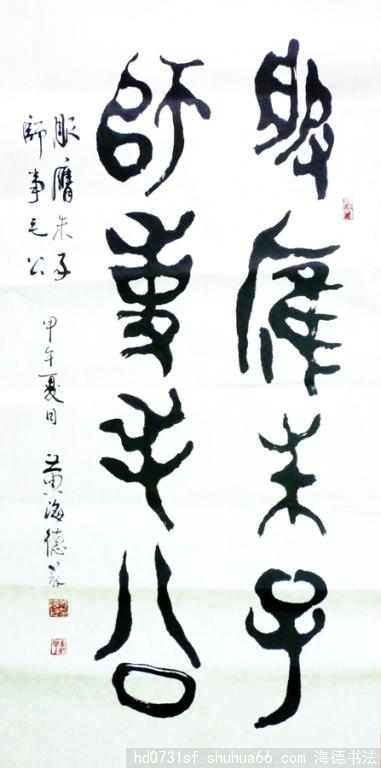 服膺朱子
師事毛公
服膺朱子
師事毛公
甲午夏日 黄海德篆
hd0731sf.shuhua66.com 海德书法